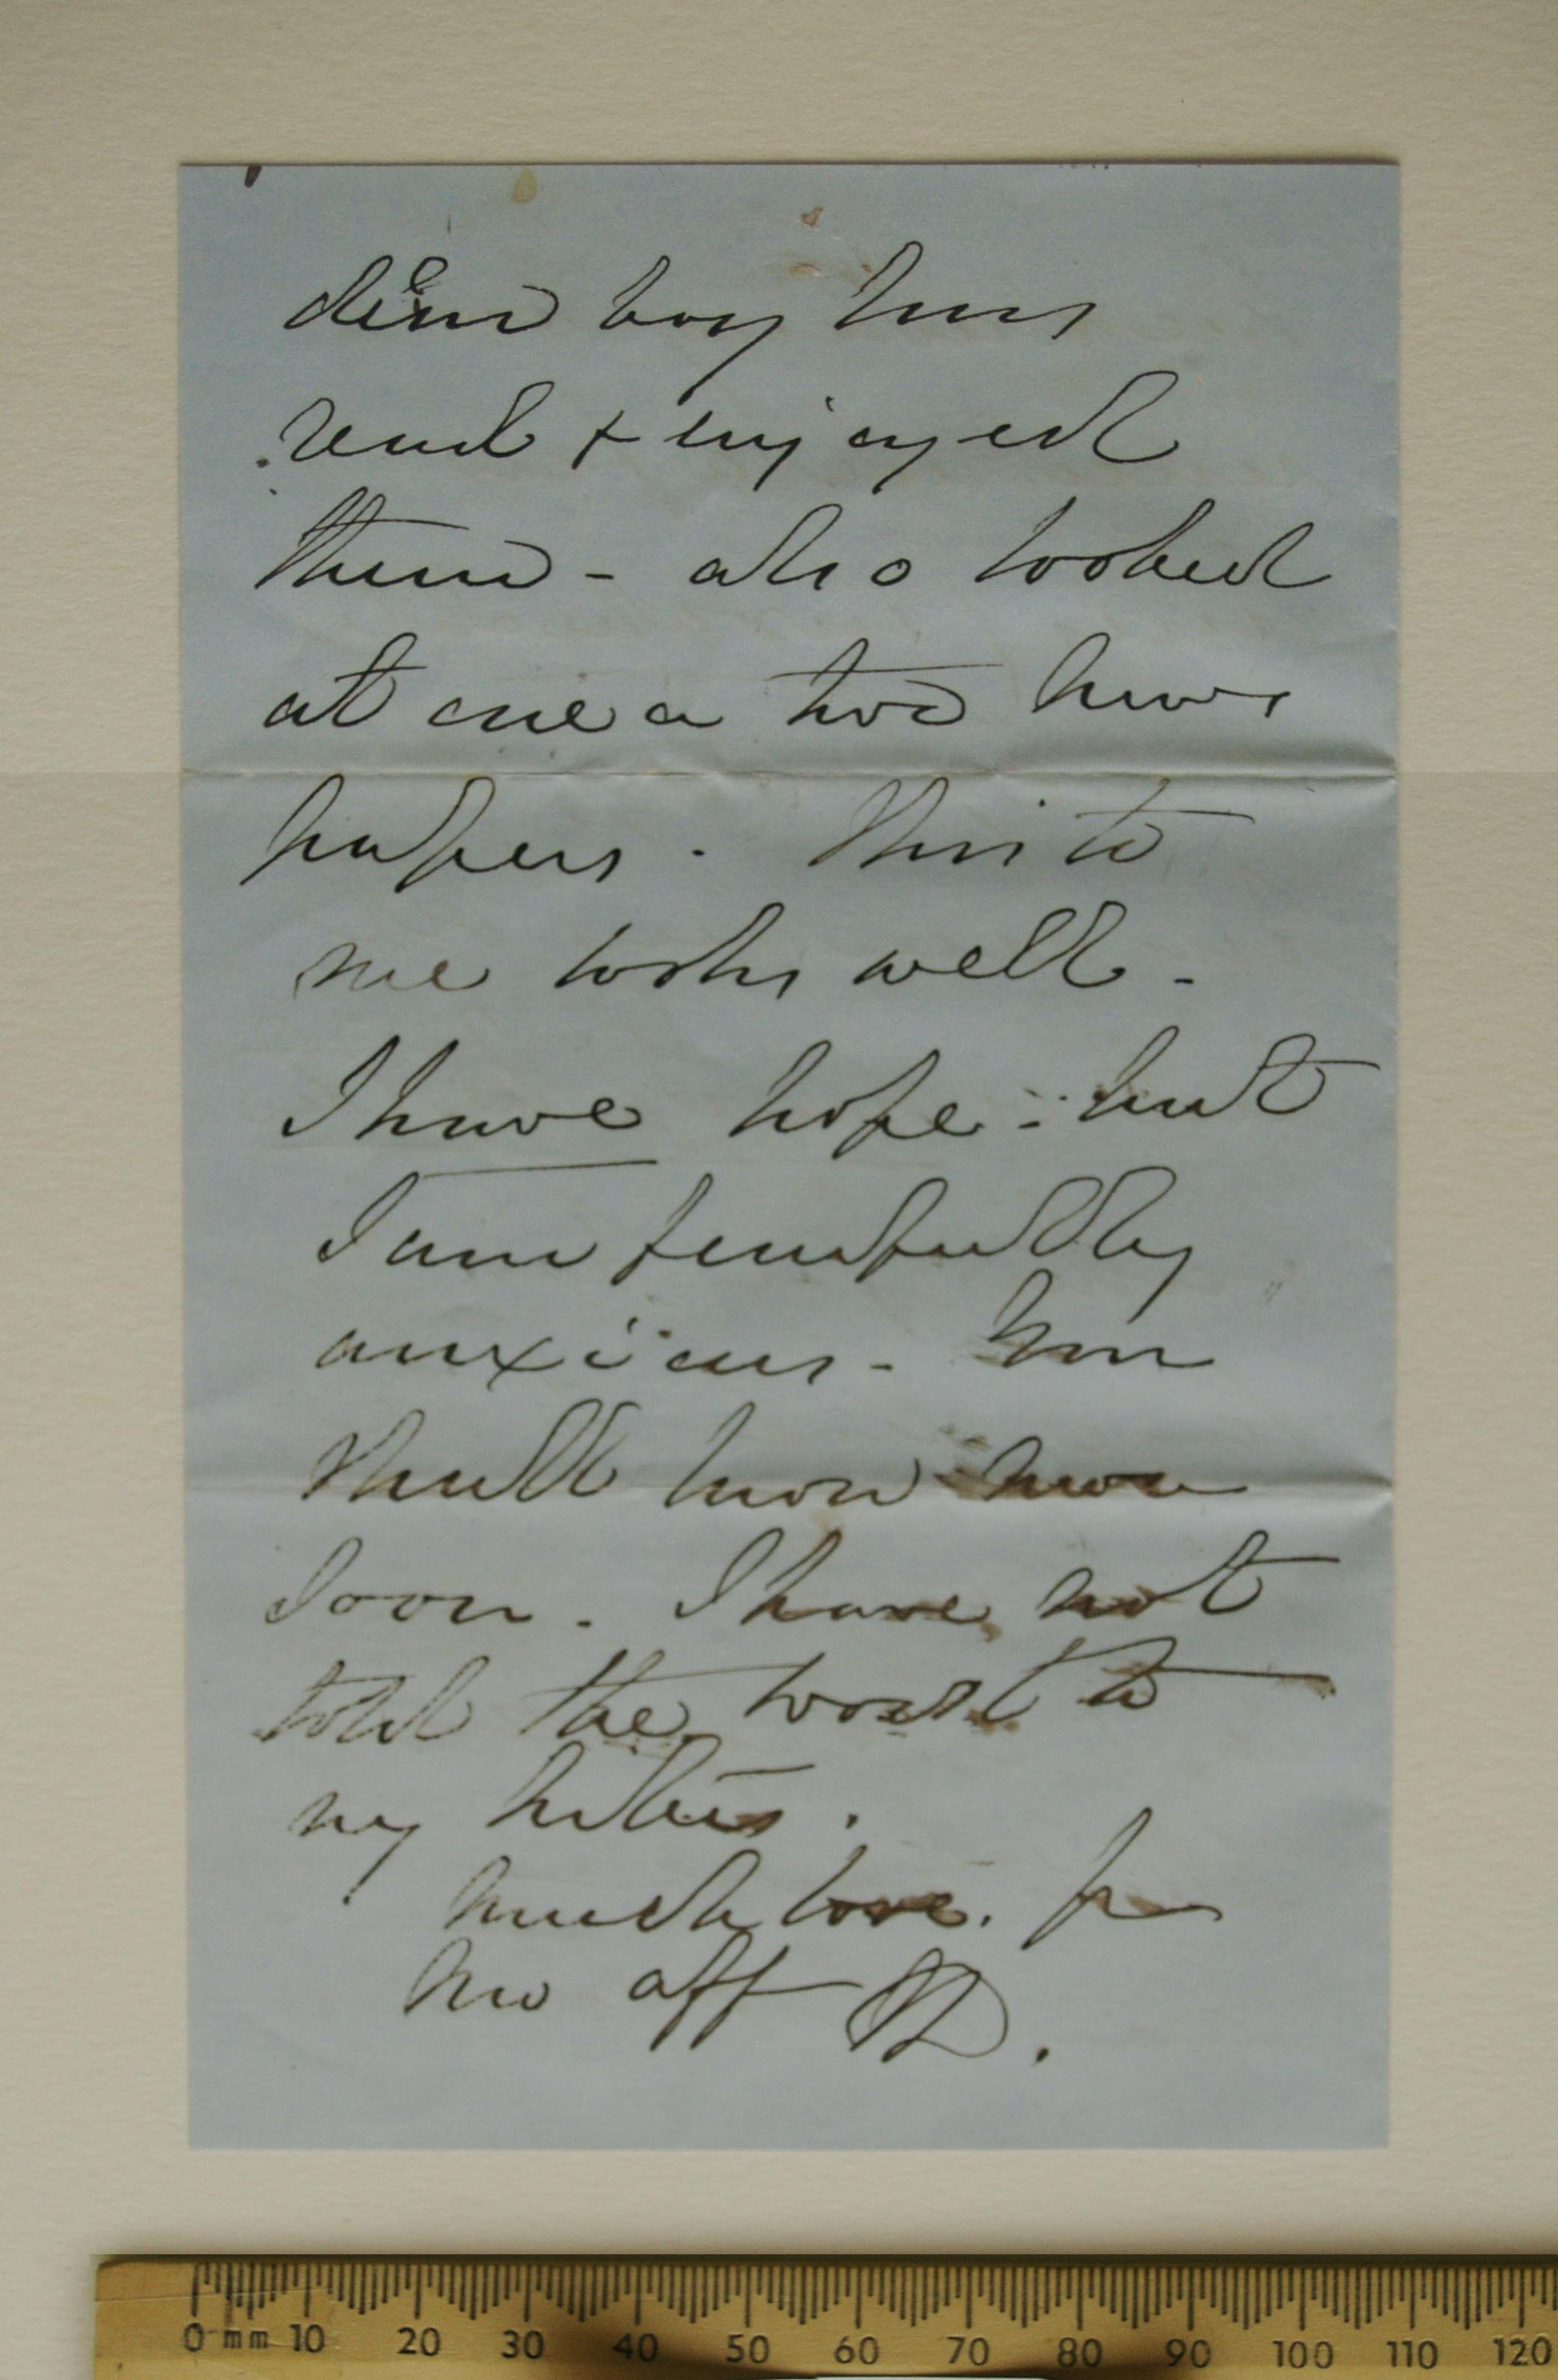 dear boy has
read & enjoyed
them - also looked
at one or two news
papers. This to
me looks well -
I have hope: but
I am fearfully
anxious - You
shall know more
soon. I have not
told the worst to
my sisters.
Much love. Yr
own aff
0 mm 10 20 30 40 50 60 70 80 90 100 110 120